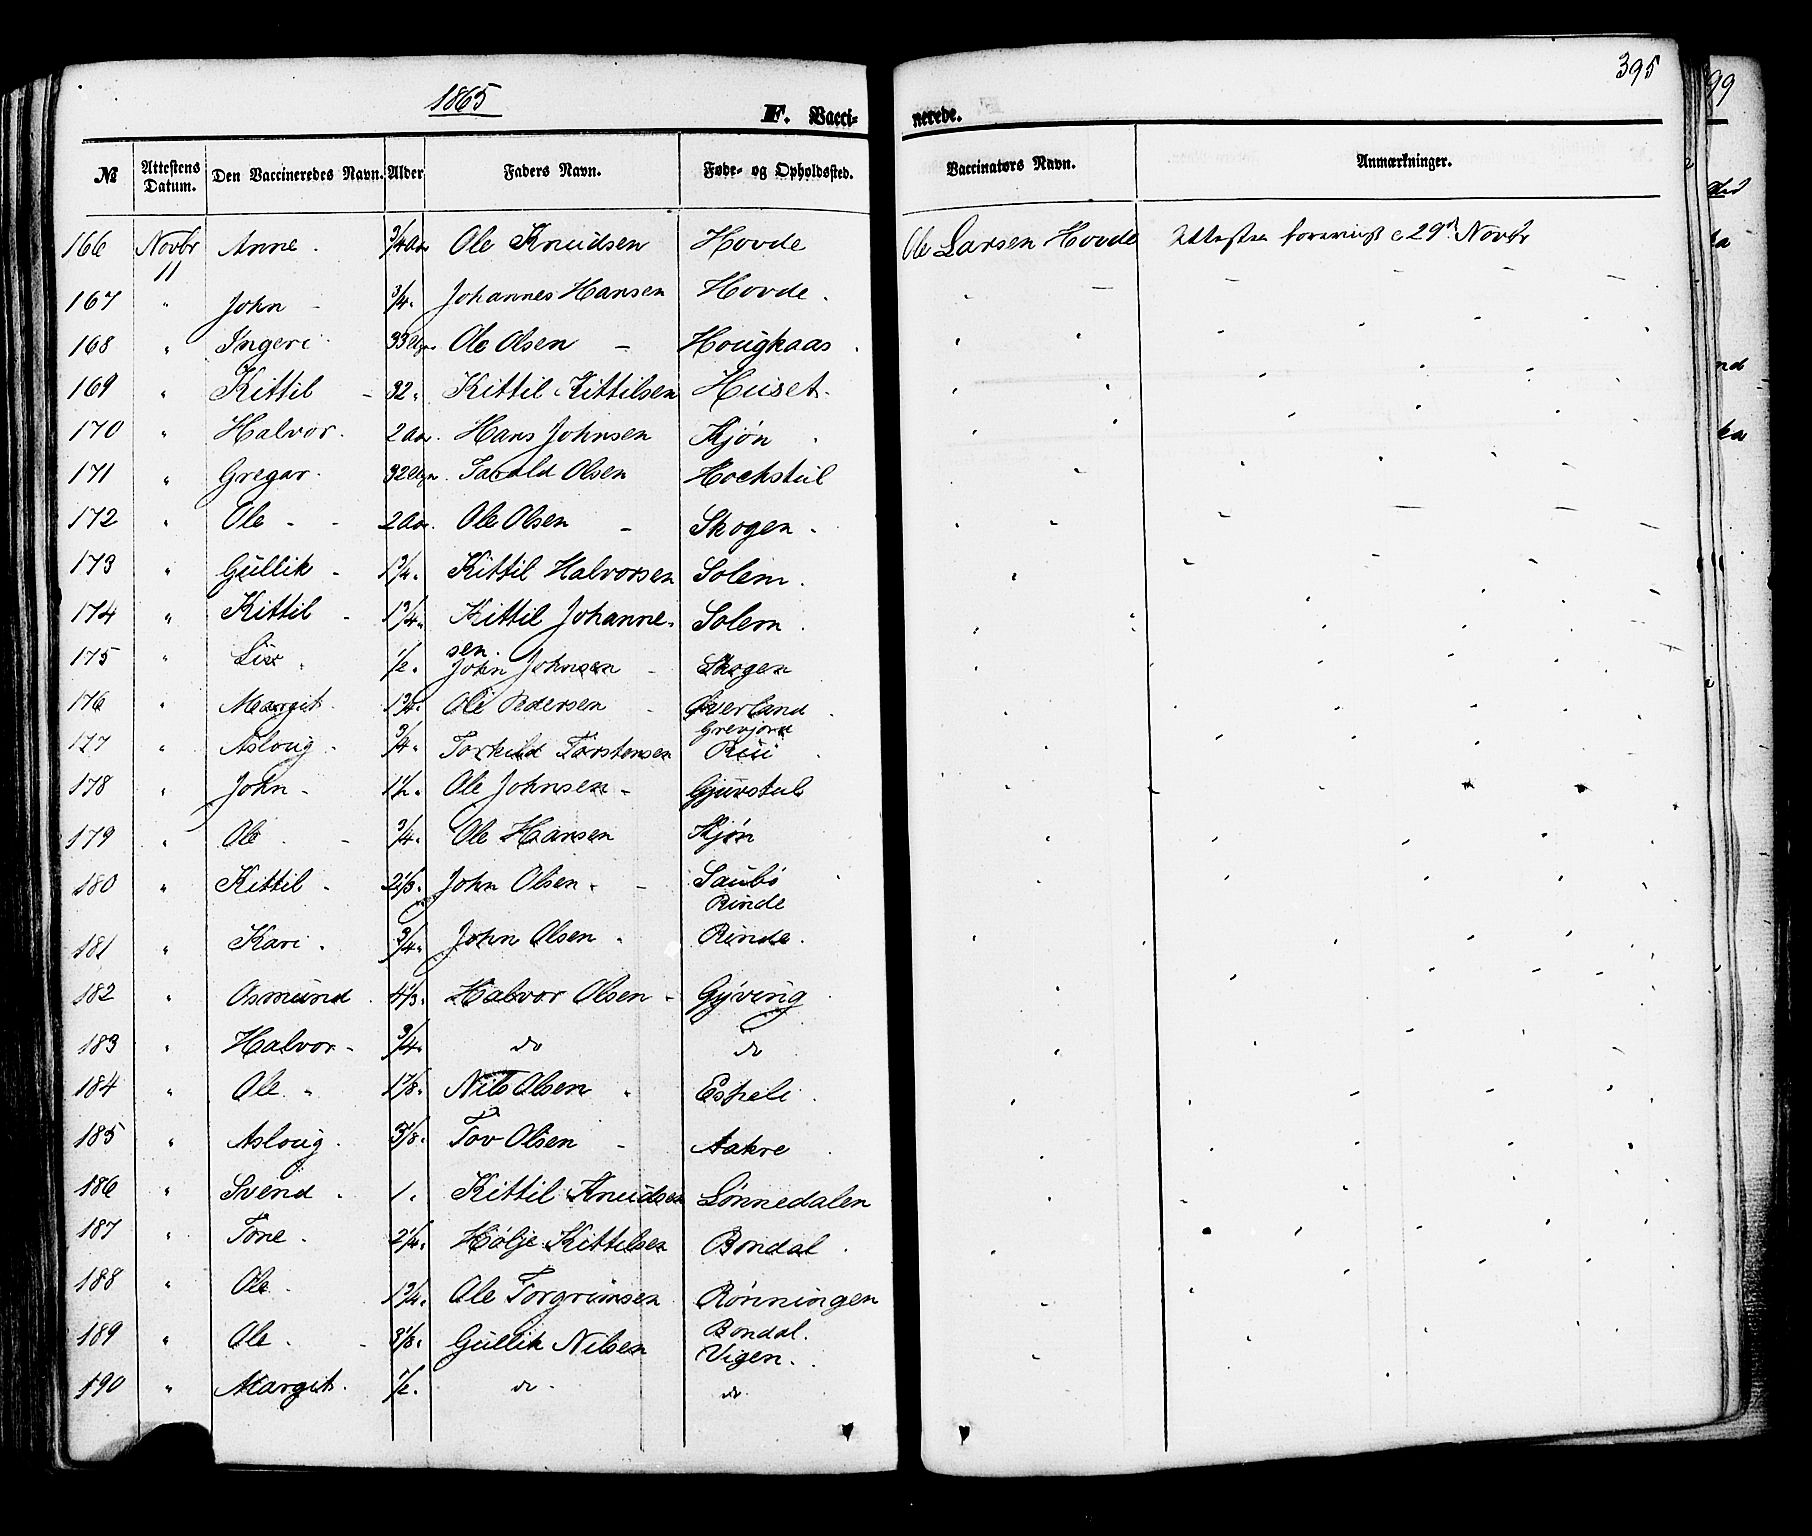 1865
395
F. Vacci-
nerede.
№ Attestens Datum. Den Vaccineredes Navn. Alder Faders Navn. Føde- og Opholdssted. Vaccinators Navn. Anmærkninger.
166 Novbr 11 Anne. 3/4 Aar Ole Knudsen Hovde Ole Larsen Hovde Attesten foreviist 29de Novbr
167 " John - 3/4 " Johannes Hansen Hovde.
168 " Ingeri. 33 Ugr Ole Olsen - Hougkaas.
169 " Kittil - 32 " Kittil Kittilsen Huset.
170 " Halvor. 2 Aar. Hans Johnsen Kjøn
171 " Gregar. 32 Ugr. Tarald Olsen Hockstul
172 " Ole - - 2 Aar. Ole Olsen - Skogen.
173 " Gullik - 1 3/4 " Kittil Halvorsen Solem.
174 " Kittil - 1 3/4 " Kittil Johanne-
sen. Solem.
175 " Liv. 1/2 " John Johnsen - Skogen
176 " Margit. 1 3/4 " Ole Pedersen - Øverland.
177 " Asloug. 3/4 " Torkild Torstensen Grevjord
Rui
178 " John - 1 1/2 " Ole Johnsen - Gjuvstul
179 " Ole - 3/4 " Ole Hansen Kjøn
180 " Kittil. 2 1/3 " John Olsen. - Saubø
Rinde
181 " Kari. 3/4 " John Olsen " Rinde.
182 " Osmund. 4 1/3 " Halvor Olsen - Gyving
183 " Halvor - 3/4 " do do
184 " Ole. " 1 7/8 " Nils Olsen " Espeli.
185 " Asloug. 5/8 " Tov Olsen - Aakre
186 " Svend. 1 " Kittil Knudsen Lønnedalen
187 " Tone. 2 1/4 " Hølje Kittelsen Bondal.
188 " Ole. 1 3/4 " Ole Torgrimsen Rønningen
189 " Ole. - 3 1/8 " Gullik Nilsen Bondal.
Vigen.
190 " Margit. 1/2 " do. do.